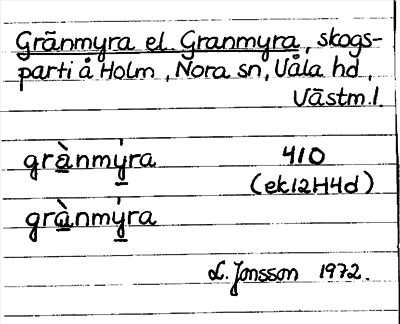 Grānmyra el. Granmyra, skogs-
parti å Holm, Nora sn, Våla hd,
Västm l.
grànmýra 410
(ek12H4d)
grànmýra
L. Jonsson 1972.